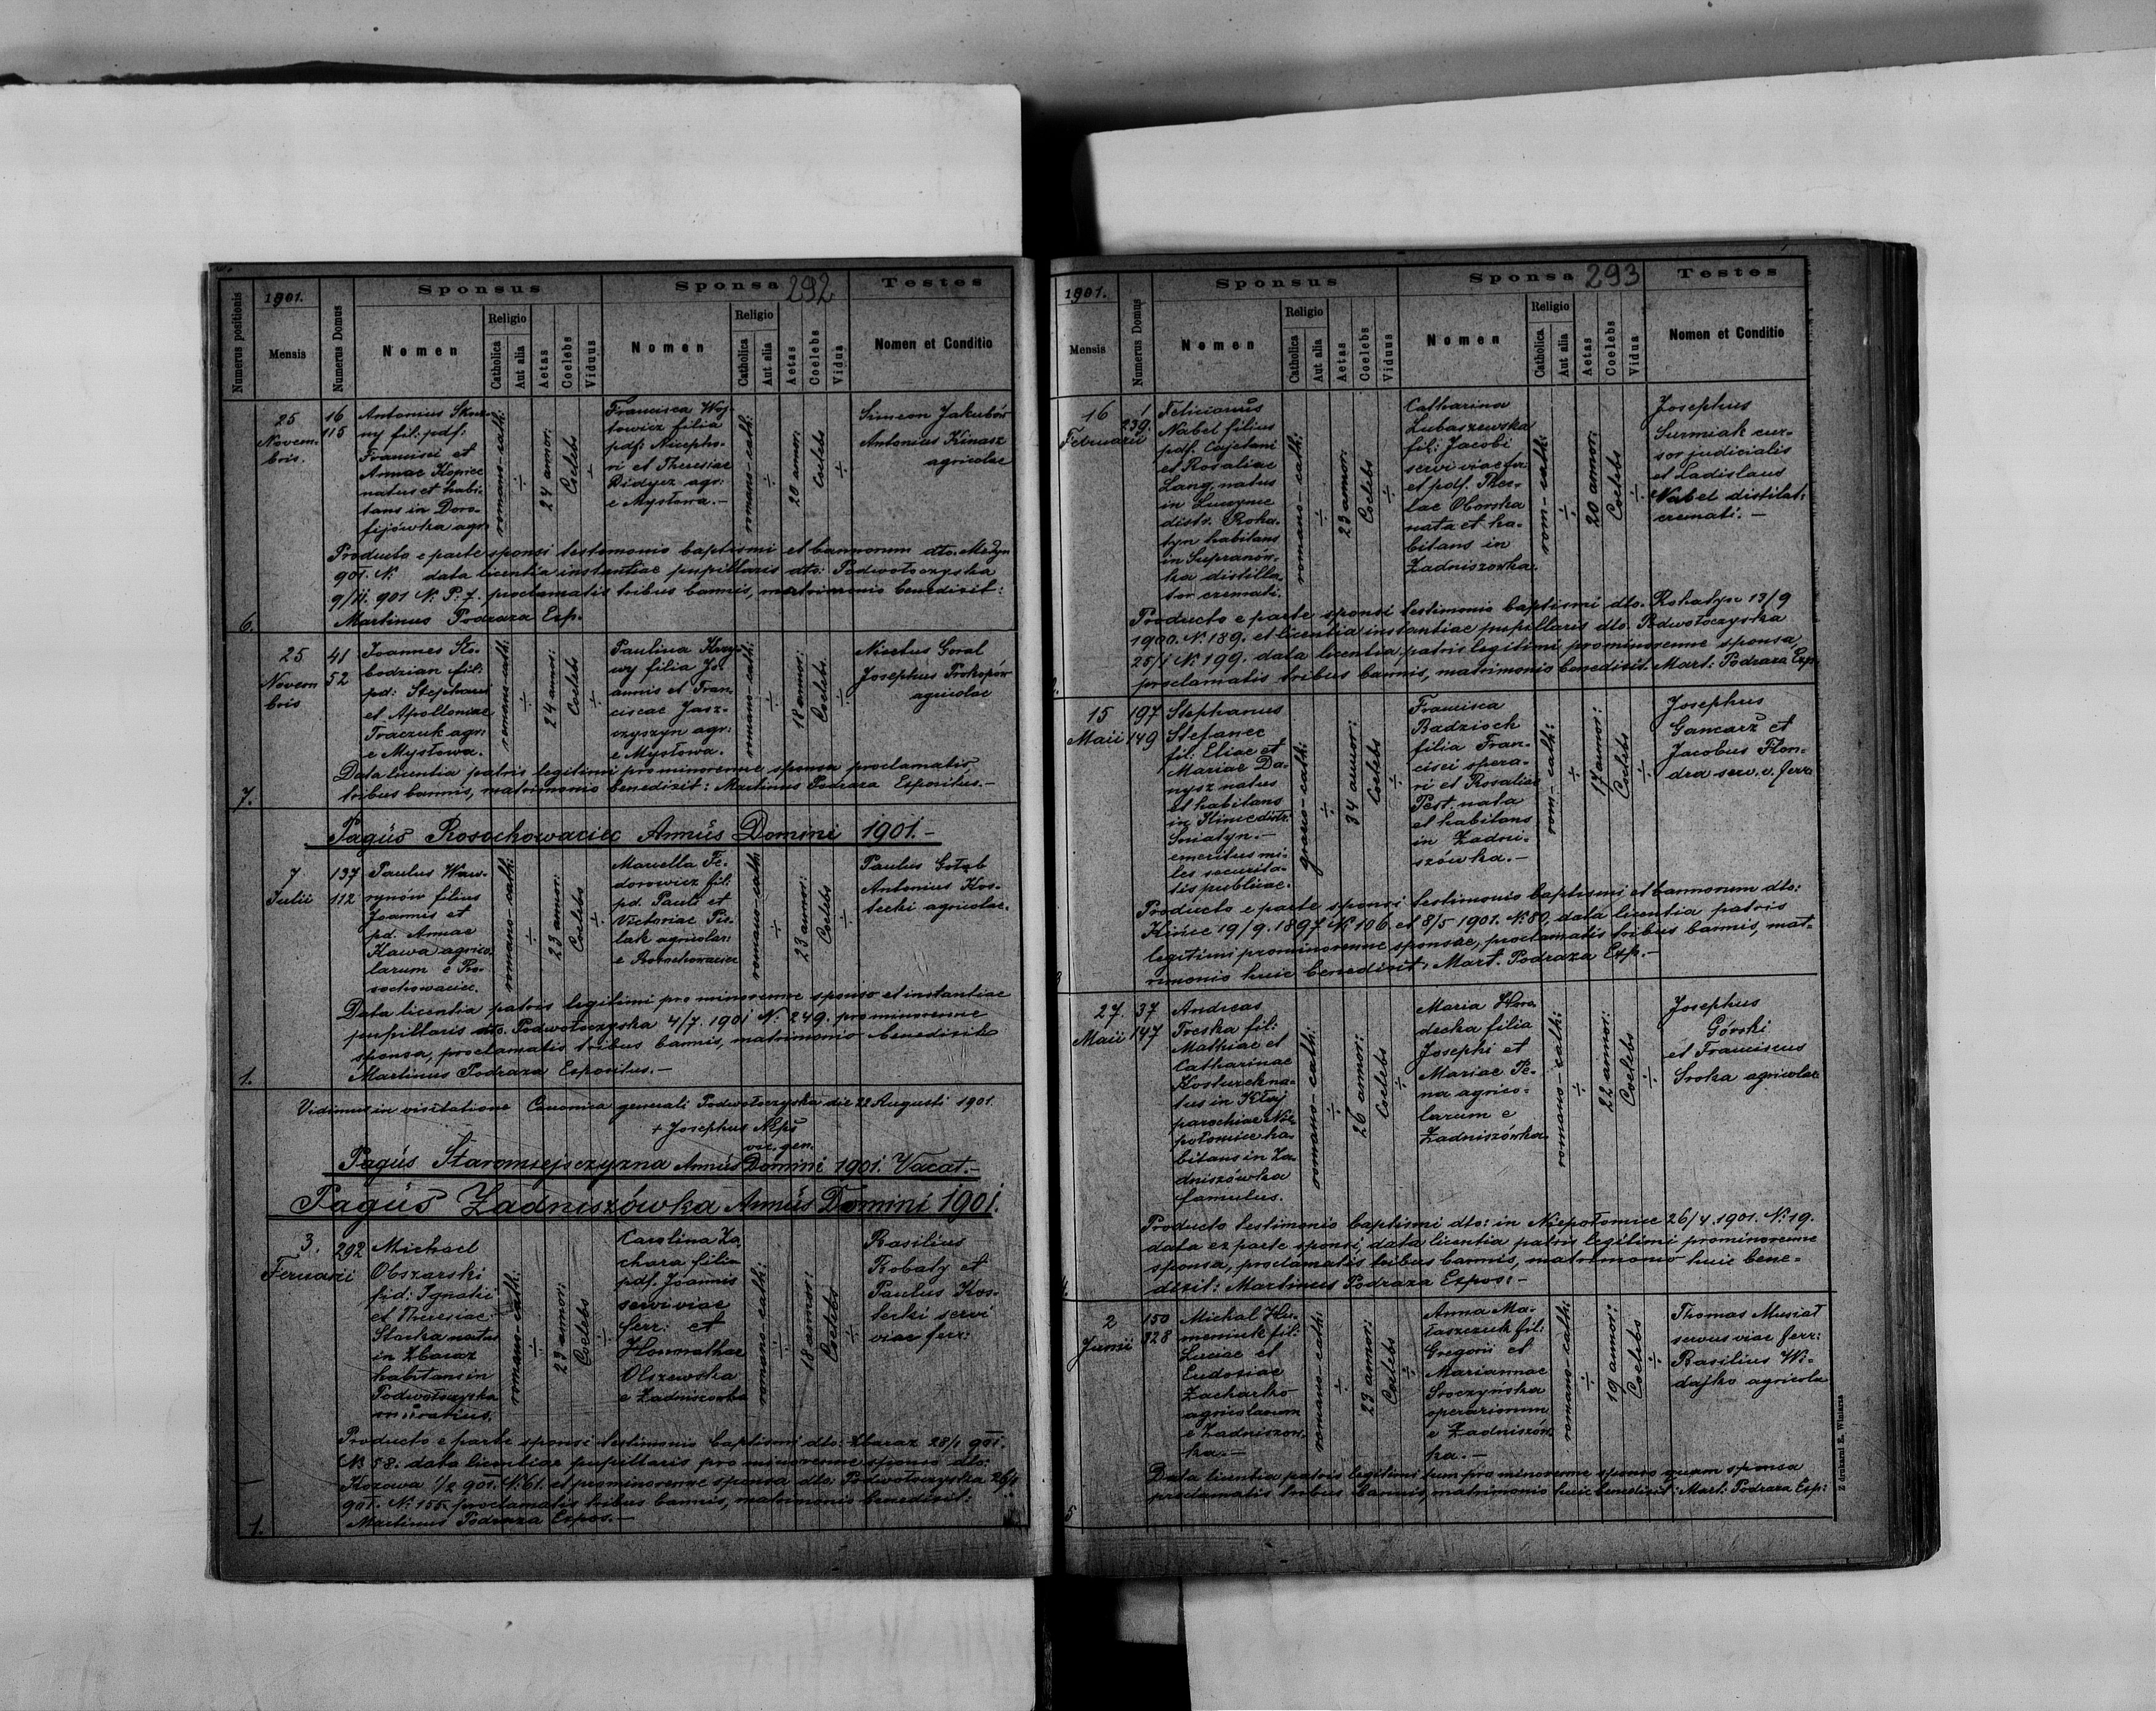 292
Numerus positionis
1901.
Mensis
Numerus Domus
Sponsus
Nomen
Religio
Catholica
Aut alia
Aetas
Coelebs
Viduus
Sponsa
Nomen
Religio
Catholica
Aut alia
Aetas
Coelebs
Vidua
Testes
Nomen et Conditio
6.
25
Novem-
bris.
16
115
Antonius
ny fil: pdf:
Francisci et
Annae Koprec
natus et habi-
tans in Doro-
fijówka agr:
romano-cath:
÷
24 annor:
Coelebs
÷
Francisca Woj-
towicz filia
pdf: Nicepho-
ri et Theresiae
Didycz agr:
e Mysłowa.-
romano-cath:
÷
20 annor:
Coelebs
÷
Simeon Jakubów
Antonius Kinasz
agricolae
Producto e parte sponsi testomonio baptismi et bannorum dto. Medyn
901. N: data licentia instantiae pupillaris dto: Podwołoczyska
9/11. 901 N: P: 7. proclamatis tribus bannis, matrimonio benedixit:
Martinus Podraza Exp.
7.
25
Novem
bris
41
52
Joannes Sło-
bodzian fil:
pd: Stephani
et Apolloniae
Traczuk agr:
e Mysłowa.
romano-cath:
÷
24 annor:
Coelebs
÷
Paulina Krzy-
wy filia Jo-
annis et Fran-
ciscae Jasz-
czyszyn agr:
e Mysłowa.
romano-cath:
÷
18 annor:
Coelebs.
÷
Nicetus Goral
Josephus Prokopów
agricolae
Data licentia patris legitimi pro minorenne sponsa proclamatis
tribus bannis, matrimonio benedixit: Martinus Podraza Expositus.-
Pagus Rosochowaciec Annus Domini 1901.-
1.
7
Julii
137
112
Paulus Waw-
rynów filius
Joannis et
pd. Annae
Kawa agrico-
larum e Ro-
sochowaciec.
romano-cath:
÷
23 annor:
Coelebs
÷
Marcella Fe-
dorowicz fil:
pd. Pauli et
Victoriae Pis-
lak agricolar:
e Rosochowaciec
romano-cath:
÷
23 annor:
Coelebs
÷
Paulus Gołąb
Antonius Kos-
tecki agricolae.
Data licentia patris legitimi pro minorenne sponso et instantiae
pupillaris dto. Podwołoczyska 4/7. 1901 N: 249. pro minorenne
sponsa, proclamatis tribus bannis, matrimonio benedixit
Martinus Podraza Expositus.-
Vidimus in visitatione Canonica generali Podwołoczyska die 22 Augusti 1901.
+ Josephus
vic. gen.
Pagus Staromiejszczyzna Annus Domini 1901. Vacat.-
Pagus Zadniszówka Annus Domini 1901.
1.
3.
Feruarii
292
Michael
Obszarski
fid: Ignatii
et Theresiae
Stacha natus
in Zbaraz
habitans in
Podwołoczyska
romano-cath:
÷
23 annor:
Coelebs
÷
Carolina Za-
chara filia
pdf. Joannis
servi viae
ferr: et
Honorathae
Olszewska
e Zadniszowka
romano-cath:
÷
18 annor:
Coelebs
÷
Basilius
Kobaty et
Paulus Kos-
tecki servi
viae ferr:
Producto e parte sponsi testimonio baptismi dto: Zbaraz 28/1 901.
N: 58: data licentiae pupillaris pro minorenne sponso dto:
Kozowa 1/2 901. N: 61. et pro minorenne sponsa dto: Podwołoczyska 26/1
901. N: 155. proclamatis tribus bannis, matrimonio benedixit:
Martinus Podraza Expos.-
293
1901.
Mensis
Numerus Domus
Sponsus
Nomen
Religio
Catholica
Aut alia
Aetas
Coelebs
Viduus
Sponsa
Nomen
Religio
Catholica
Aut alia
Aetas
Coelebs
Vidua
Testes
Nomen et Conditio
16
Februarii
1
239.
Felicianus
Nabel filius
pdf. Cajetani
et Rosaliae
Lang, natus
in Luczynce
distr. Roha-
tyn habitans
in Supranów-
ka distilla-
tor cremati.
romano-cath:
÷
23 annor:
Coelebs
÷
Catharina
Lubaszewska
fil: Jacobi
servi viae fer
et pdf. Thec-
lae Oborska
nata et ha-
bitans in
Zadniszowka.
rom-cath:
÷
20 annor:
Coelebs
÷
Josephus
Surmiak cur-
sor judicialis
et Ladislaus
Nabel distilat:
cremati.-
Producto e parte sponsi testimonio baptismi dto. Rohatyn 13/9
1900. N: 189. et licentia instantiae pupillaris dto. Podwołoczyska
25/1 N: 199. data licentia patris legitimi pro minorenne sponsa,
proclamatis tribus bannis, matrimonio benedixit. Mart: Podraza Exp.
15
Maii
197
149
Stephanus
Stefanec
fil: Eliae et
Mariae Da-
nysz natus
et habitans
in Kinice distr:
Sniatyn.-
emeritus mi-
les securita-
tis publicae.
graeco-cath:
÷
34 annor:
Coelebs
÷
Francisca
Badzioch
filia Fran-
cisci opera-
ri et Rosaliae
Pest. nata
et habitans
in Zadni-
szówka.-
rom-cath:
÷
17 annor:
Coelebs
÷
Josephus
Gancarz et
Jacobus Kon-
dra serv. v. ferr.
Producto e parte sponsi testimonio baptismi et bannorum dto:
Kińce 19/9. 1897. N: 106. et 8/5 1901. N: 80. data licentia patris
legitimi pro minorenne sponsae, proclamatis tribus bannis, mat-
rimonio huic benedixit. Mart. Podraza Exp.-
4.
27.
Maii
37
147
Andreas
Treska fil:
Mathiae et
Catharinae
Kosturek na-
tus in Kłaj
parochiae Nie-
połomice ha-
bitans in Za-
dniszówka
famulus.
romano-cath:
÷
26 annor:
Coelebs
÷
Maria Hora-
decka filia
Josephi et
Mariae Pe-
na agrico-
larum e
Zadniszówka
romano-cath:
÷
22 annor:
Coelebs
÷
Josephus
Górski
et Franciscus
Sroka agricolae
Producto testimonio baptismi dto: in Niepołomice 26/4. 1901. N: 19.
data ex parte sponsi, data licentia patris legitimi pro minorenne
sponsa, proclamatis tribus bannis, matrimonio huic bene-
dixit: Martinus Podraza Expos:-
5
2
Junii
150
328
Michal Hu-
meniuk fil:
Lucae et
Eudosiae
Zacharko
agricolarum
e Zadniszow-
ka.-
romano-cath:
÷
23 annor:
Coelebs
÷
Anna Ma-
taszczuk fil:
Gregorii et
Mariannae
Sroczyńska
operariorum
e Zadniszów-
ka.-
romano-cath:
÷
19 annor:
Coelebs
÷
Thomas Musiał
servus viae ferr:
Basilius Wi-
dajko agricola
Data licentia patris legitimi tum pro minorenne sponso quam sponsa
proclamatis tribus bannis, matrimonio huic benedixit: Mart: Podraza Exp:
Z drukarni E. Winiarza